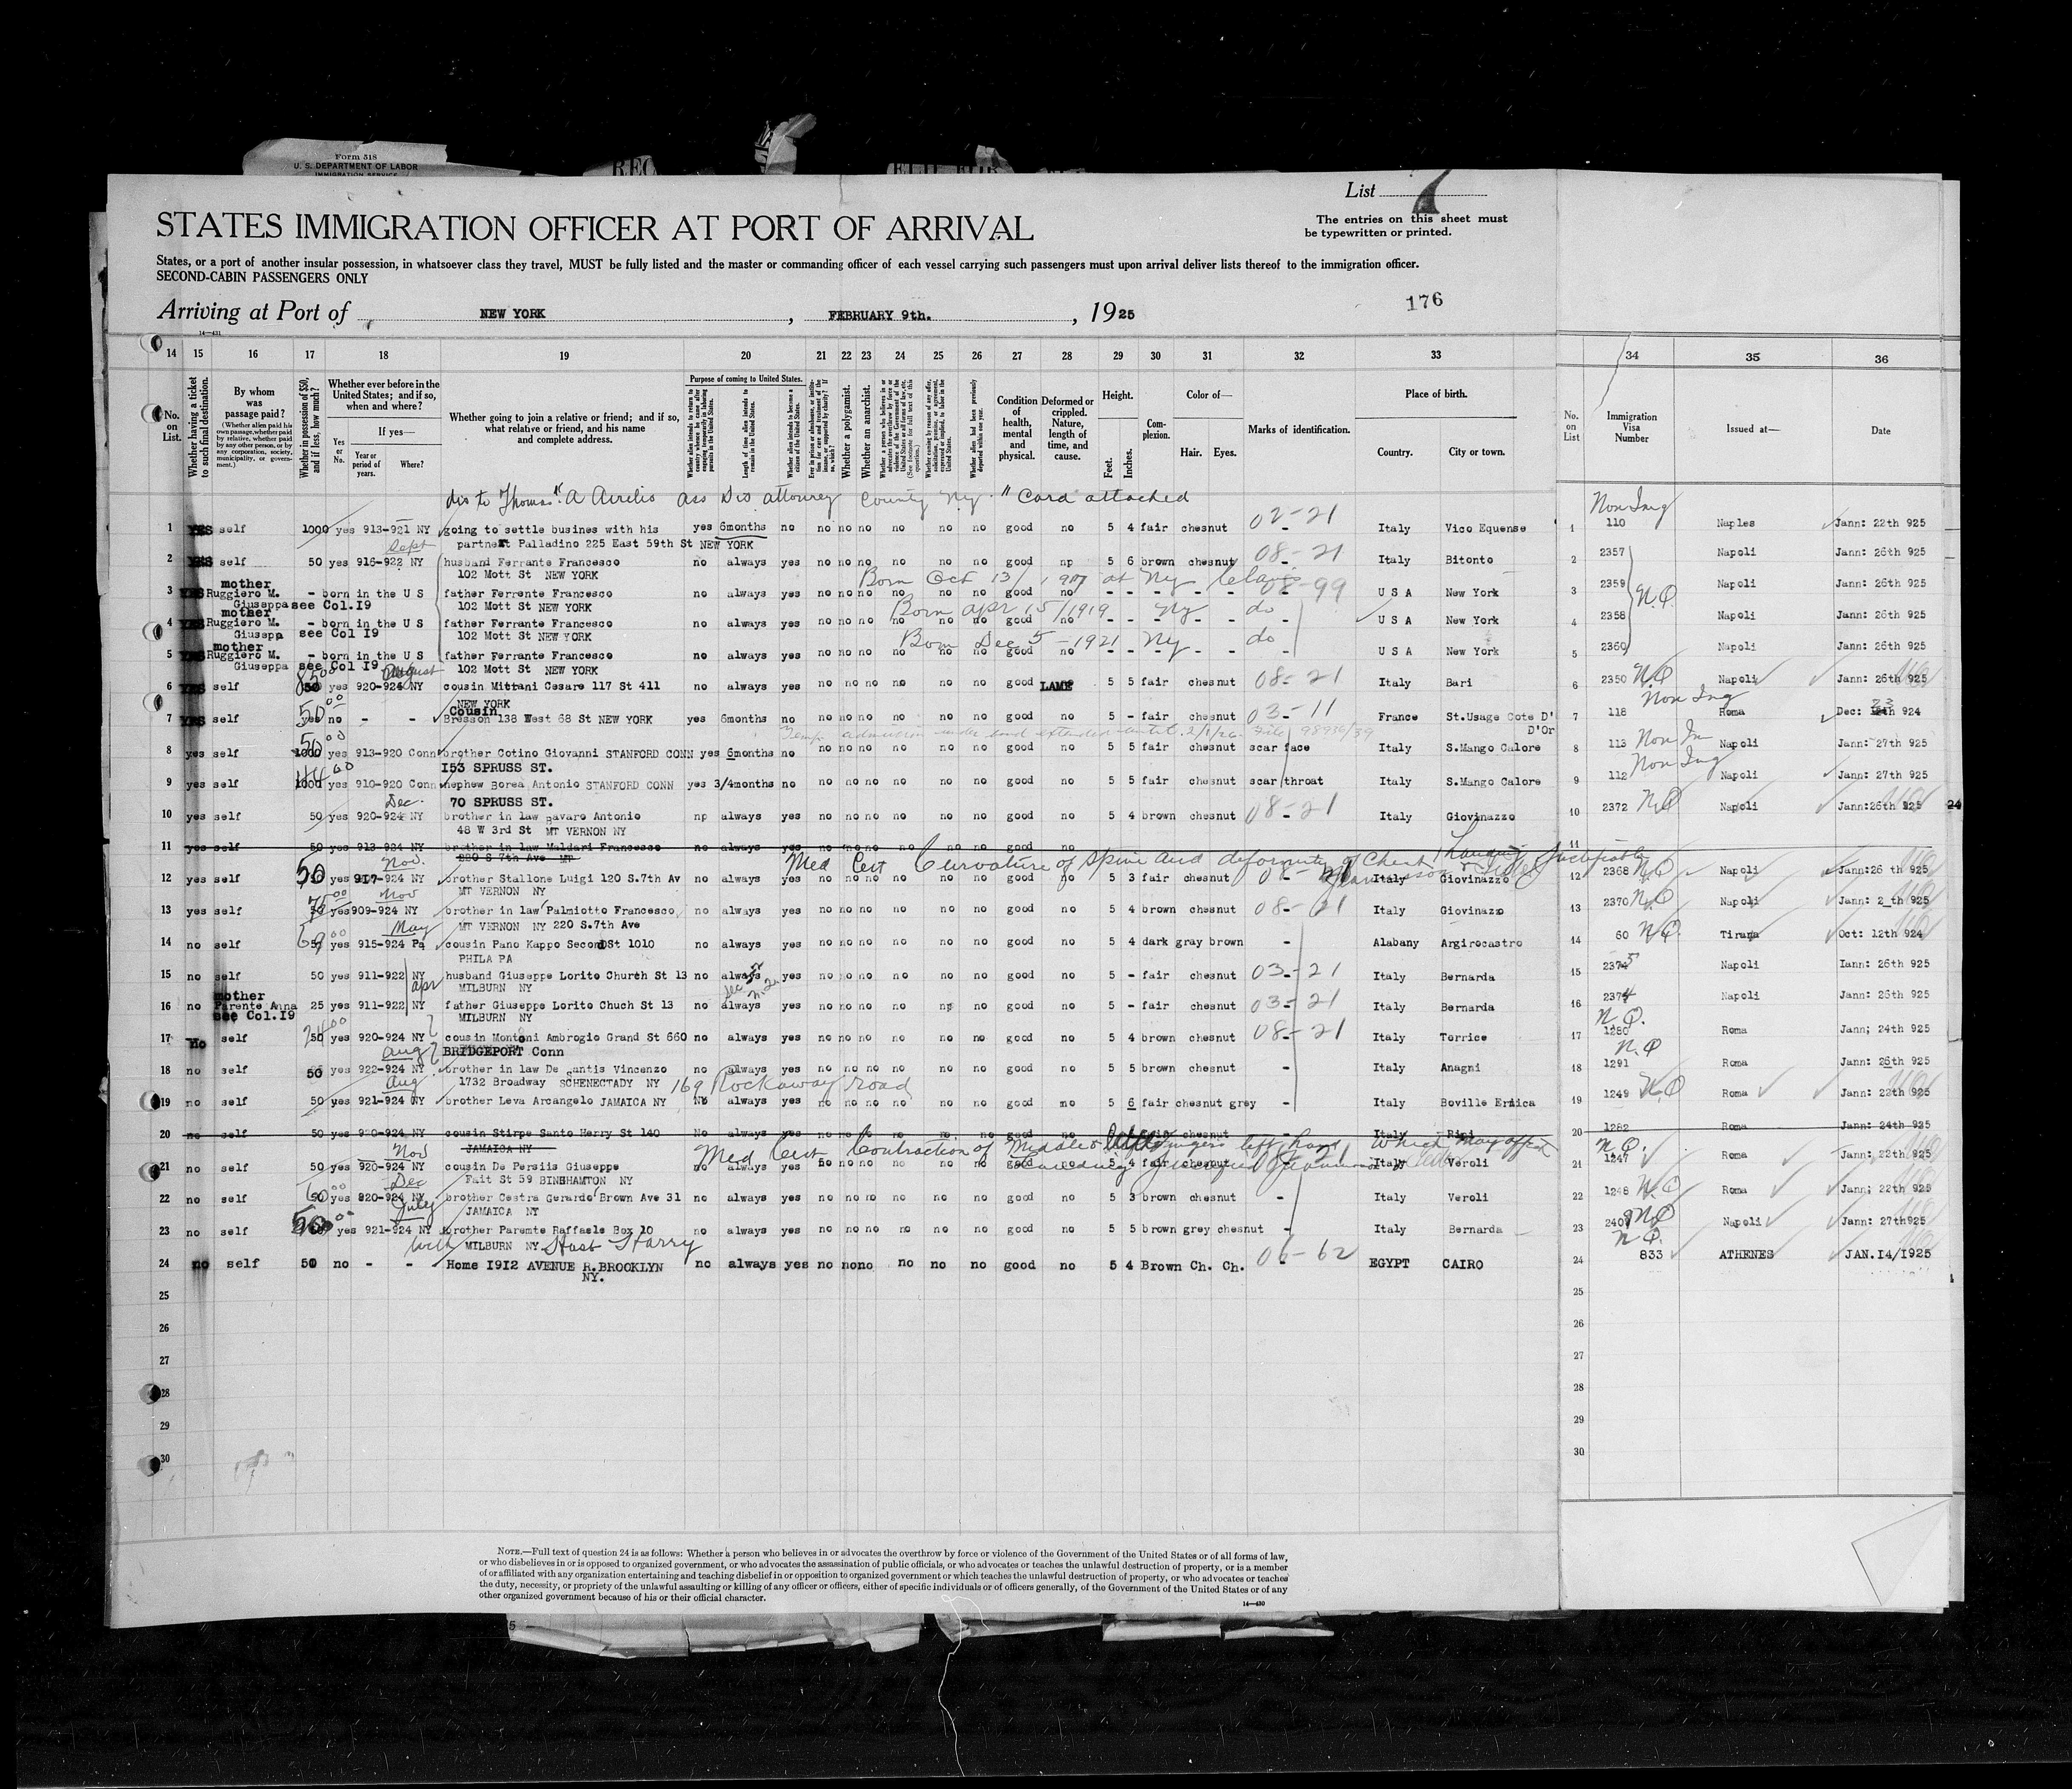 Form 518
U. S. DEPARTMENT OF LABOR
IMMIGRATION SERVICE
List 7
STATES IMMIGRATION OFFICER AT PORT OF ARRIVAL
The entries on this sheet must
be typewritten or printed.
States, or a port of another insular possession, in whatsoever class they travel, MUST be fully listed and the master or commanding officer of each vessel carrying such passengers must upon arrival deliver lists thereof to the immigration officer.
SECOND-CABIN PASSENGERS ONLY
Arriving at Port of NEW YORK, FEBRUARY 9th., 1925
176
14—431
14 15 16 17 18 19 20 21 22 23 24 25 26 27 28 29 30 31 32 33 34 35 36
No. on List.
Whether having a ticket to such final destination.
By whom was passage paid?
(Whether alien paid his own passage, whether paid by relative, whether paid by any other person, or by any corporation, society, municipality, or government.)
Whether in possession of $50, and if less, how much?
Whether ever before in the United States; and if so, when and where?
If yes—
Yes or No.
Year or period of years.
Where?
Whether going to join a relative or friend; and if so, what relative or friend, and his name and complete address.
Purpose of coming to United States.
Length of time alien intends to remain in the United States.
Whether alien intends to become a citizen of the United States.
Whether a polygamist.
Whether an anarchist.
Condition of health, mental and physical.
Deformed or crippled. Nature, length of time, and cause.
Height.
Feet.
Inches.
Complexion.
Color of—
Hair. Eyes.
Marks of identification.
Place of birth.
Country. City or town.
No. on List
Immigration Visa Number
Issued at—
Date
dis to Thomas A Aurelio ass Dis attourey County Ny. " Card attached
Non Img
1 YES self 1000 yes 913-921 NY going to settle busines with his yes 6months no no no no no no no good no 5 4 fair chesnut 02-21 Italy Vico Equense 1 110 Naples Jann: 22th 925
Sept partnert Palladino 225 East 59th St NEW YORK
2 YES self 50 yes 916-922 NY husband Ferrante Francesco no always yes no no no no no no good np 5 6 brown chesnut 08-21 Italy Bitonto 2 2357 Napoli Jann: 26th 925
102 Mott St NEW YORK Born Oct 13/ at Ny
mother
3 YES Ruggiero M. - born in the U S father Ferrente Francesco no always yes no no no no no no good no - - - - - 08-99 U S A New York 3 2359 N.Q. Napoli Jann: 26th 925
Giuseppa see Col.I9 102 Mott St NEW YORK Born apr 15/1919 Ny do
mother
4 YES Ruggiero M. - born in the U S father Ferrante Francesco no always yes no no no no no no good no - - - - - - U S A New York 4 2358 Napoli Jann: 26th 925
Giusepp see Col I9 102 Mott St NEW YORK Born Dec 5-1921 Ny do
mother
5 YES Ruggiero M. - born in the U S father Ferrante Francesco no always yes no no no no no no good no - - - - - - U S A New York 5 2360 Napoli Jann: 26th 925
Giuseppa see Col I9 August 102 Mott St NEW YORK
6 YES self 50 yes 920-924 NY cousin Mittrani Cesare 117 St 411 no always yes no no no no no no good LAME 5 5 fair chesnut 08-21 Italy Bari 6 2350 NQ Napoli Jann: 26th 925
NEW YORK
Non Img
Cousin
7 YES self yes no - - Bresson 138 West 68 St NEW YORK yes 6months no no no no no no no good no 5 - fair chesnut 03-11 France St.Usage Cote D' 7 118 Roma Dec: 23 924
D'Or
Temp admission under bond extended until 2/1/26. File 98936/39
8 yes self 1000 yes 913-920 Conn brother Cotino Giovanni STANFORD CONN yes 6months no no no no no no no good no 5 5 fair chesnut scar face Italy S.Mango Calore 8 113 Napoli Jann: 27th 925
I53 SPRUSS ST.
Non Img
9 yes self 1000 yes 910-920 Conn nephew Borea Antonio STANFORD CONN yes 3/4months no no no no no no no good no 5 5 fair chesnut scar throat Italy S.Mango Calore 9 112 Napoli Jann: 27th 925
Dec. 70 SPRUSS ST.
10 yes self 50 yes 920-924 NY brother in law Bavaro Antonio np always yes no no no no no no good no 5 4 brown chesnut 08-21 Italy Giovinazzo 10 2372 NQ Napoli Jann:26th 925 24
48 W 3rd St MT VERNON NY
11 yes self 50 yes 913-924 NY brother in law Maldari Francesco no always yes no no no no no no good no 11
Nov. 220 S 7th Ave MT
Med Cert Curvature of spine and deformity of chest
12 yes self 50 yes 917-924 NY brother Stallone Luigi 120 S.7th Av no always yes no no no no no no good no 5 3 fair chesnut 08-21 Italy Giovinazzo 12 2368 NQ Napoli Jann:26 th 925
Nov MT VERNON NY
13 yes self yes909-924 NY brother in law Palmiotto Francesco, no always yes no no no no no no good no 5 4 brown chesnut 08-21 Italy Giovinazzo 13 2370 NQ Napoli Jann: 2_th 925
May MT VERNON NY 220 S.7th Ave
14 no self 50 yes 915-924 Pa cousin Pano Kappo Second St 1010 no always yes no no no no no no good no 5 4 dark gray brown - Alabany Argirocastro 14 60 NQ. Tirana Oct: 12th 924
PHILA PA
15 no self 50 yes 911-922 NY husband Giuseppe Lorito Church St 13 no always yes no no no no no no good no 5 - fair chesnut 03-21 Italy Bernarda 15 2375 Napoli Iann: 26th 925
apr MILBURN NY
mother
16 no Parente Anna 25 yes 911-922 NY father Giuseppe Lorito Chuch St 13 no always yes no no no no no no good no 5 - fair chesnut 03-21 Italy Bernarda 16 2374 Napoli Jann: 26th 925
see Col.I9 MILBURN NY
N.Q.
17 No self 50 yes 920-924 NY cousin Montoni Ambrogio Grand St 660 no always yes no no no no no no good no 5 4 brown chesnut 08-21 Italy Torrice 17 1280 Roma Jann; 24th 925
Aug BRIDGEPORT Conn
N.Q
18 no self 50 yes 922-924 NY brother in law De Santis Vincenzo no always yes no no no no no no good no 5 5 brown chesnut - Italy Anagni 18 1291 Roma Jann: 26th 925
Aug 1732 Broadway SCHENECTADY NY 169 Rockaway road
19 no self 50 yes 921-924 NY brother Leva Arcangelo JAMAICA NY No always yes no no no no no no good no 5 6 fair chesnut grey - Italy Boville Ernica 19 1249 N.Q Roma Jann: 22th 925
20 no self 50 yes 920-924 NY cousin Stirpe Santo Herry St 140 No always yes no no no no no no good no fair chesnut - Italy Ripi 20 1282 Roma Jann: 24th 925
Nov JAMAICA NY
Med Cert Contraction of Middle & fingers left hand which may affect
N.Q.
21 no self 50 yes 920-924 NY cousin De Persiis Giuseppe no always yes no no no no no no good no 5 4 fair chesnut 08-21 Italy Veroli 21 1247 Roma Jann: 22th 925
Dec Fait St 59 BINGHAMTON NY
22 no self yes 920-924 NY brother Cestra Gerardo Brown Ave 31 no always yes no no no no no no good no 5 3 brown chesnut - Italy Veroli 22 1248 N.Q Roma Jann; 22th 925
July JAMAICA NY
23 no self yes 921-924 NY brother Parente Raffaele Box 10 no always yes no no no no no no good no 5 5 brown grey chesnut - Italy Bernarda 23 Napoli Jann: 27th925
with MILBURN NY Husb Harry
N.Q.
24 no self 50 no - - Home I9I2 AVENUE R.BROOKLYN no always yes no no no no no no good no 5 4 Brown Ch. Ch. 06-62 EGYPT CAIRO 24 833 ATHENES JAN.I4/I925
NY.
25 25
26 26
27 27
28 28
29 29
30 30
NOTE.—Full text of question 24 is as follows: Whether a person who believes in or advocates the overthrow by force or violence of the Government of the United States or of all forms of law,
or who disbelieves in or is opposed to organized government, or who advocates the assassination of public officials, or who advocates or teaches the unlawful destruction of property, or is a member
of or affiliated with any organization entertaining and teaching disbelief in or opposition to organized government or which teaches the unlawful destruction of property, or who advocates or teaches
the duty, necessity, or propriety of the unlawful assaulting or killing of any officer or officers, either of specific individuals or of officers generally, of the Government of the United States or of any
other organized government because of his or their official character.
14—430